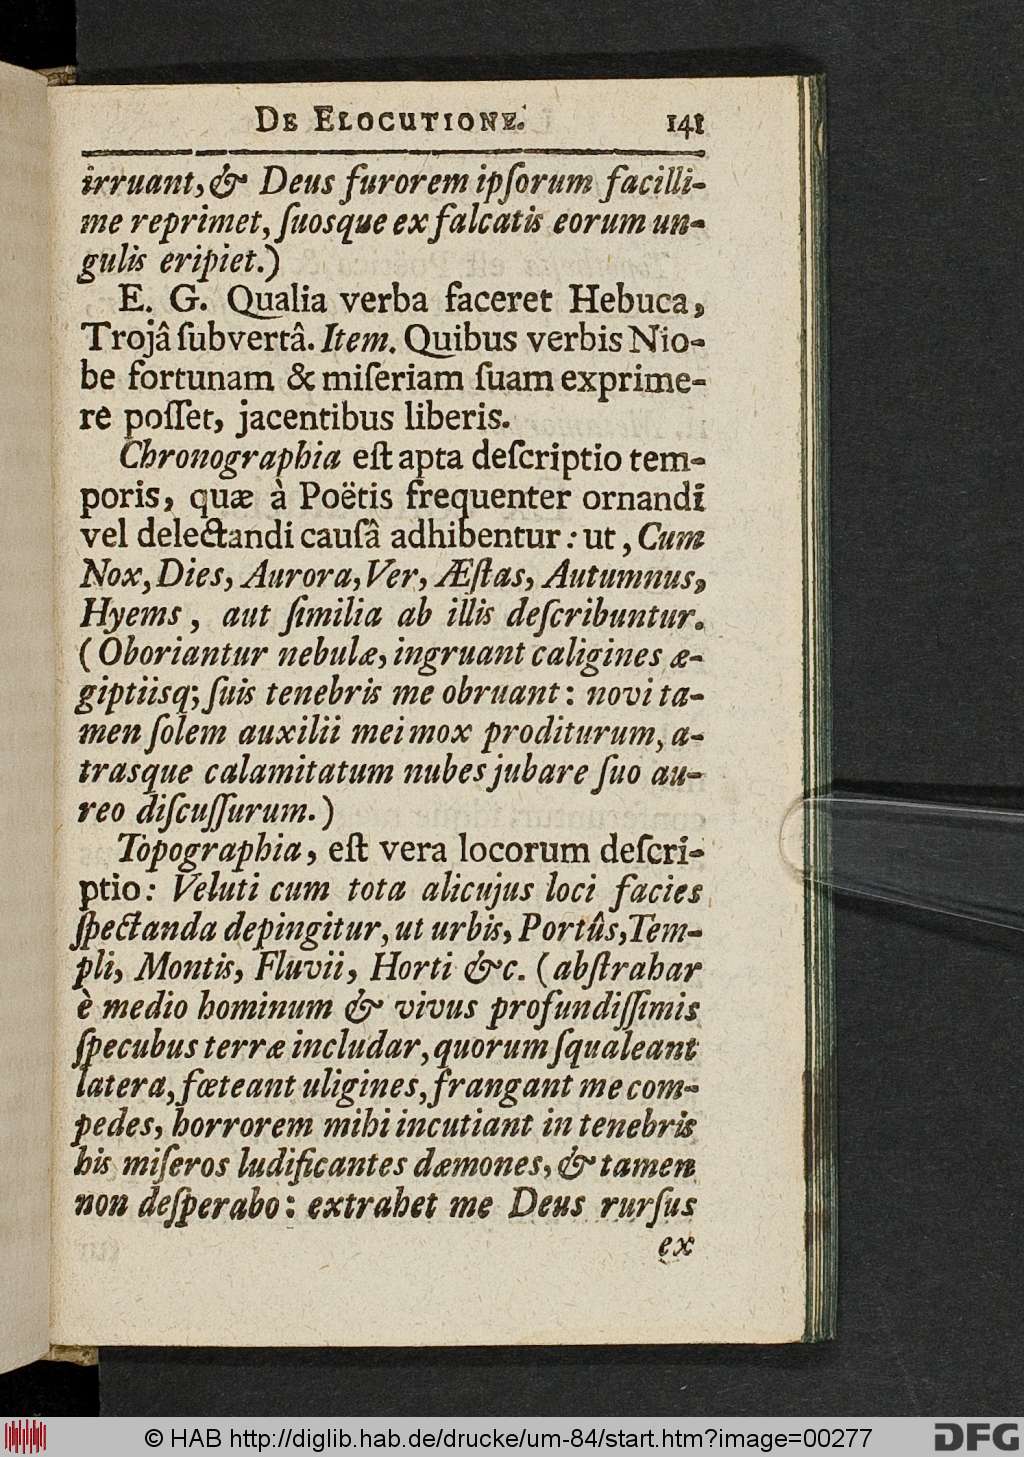 DE ELOCUTIONE. 141
irruant, & Deus furorem ipſorum facilli-
me reprimet, ſuosque ex falcatis eorum un-
gulis eripiet.)
E. G. Qualia verba faceret Hebuca,
Trojâ ſubvertâ. Item. Quibus verbis Nio-
be fortunam & miſeriam ſuam exprime-
re poſſet, jacentibus liberis.
Chronographia eſt apta deſcriptio tem-
poris, quæ à Poëtis frequenter ornandi
vel delectandi cauſâ adhibentur: ut, Cum
Nox, Dies, Aurora, Ver, Æſtas, Autumnus,
Hyems, aut ſimilia ab illis deſcribuntur.
(Oboriantur nebulæ, ingruant caligines æ-
giptiisq; ſuis tenebris me obruant: novi ta-
men ſolem auxilii mei mox proditurum, a-
trasque calamitatum nubes jubare ſuo au-
reo diſcuſſurum.)
Topographia, eſt vera locorum deſcri-
ptio: Veluti cum tota alicujus loci facies
ſpectanda depingitur, ut urbis, Portûs, Tem-
pli, Montis, Fluvii, Horti &c. (abſtrahar
è medio hominum & vivus profundiſſimis
ſpecubus terræ includar, quorum ſqualeant
latera, fœteant uligines, frangant me com-
pedes, horrorem mihi incutiant in tenebris
his miſeros ludificantes dæmones, & tamen
non deſperabo: extrahet me Deus rurſus
ex
© HAB http://diglib.hab.de/drucke/um-84/start.htm?image=00277
DFG